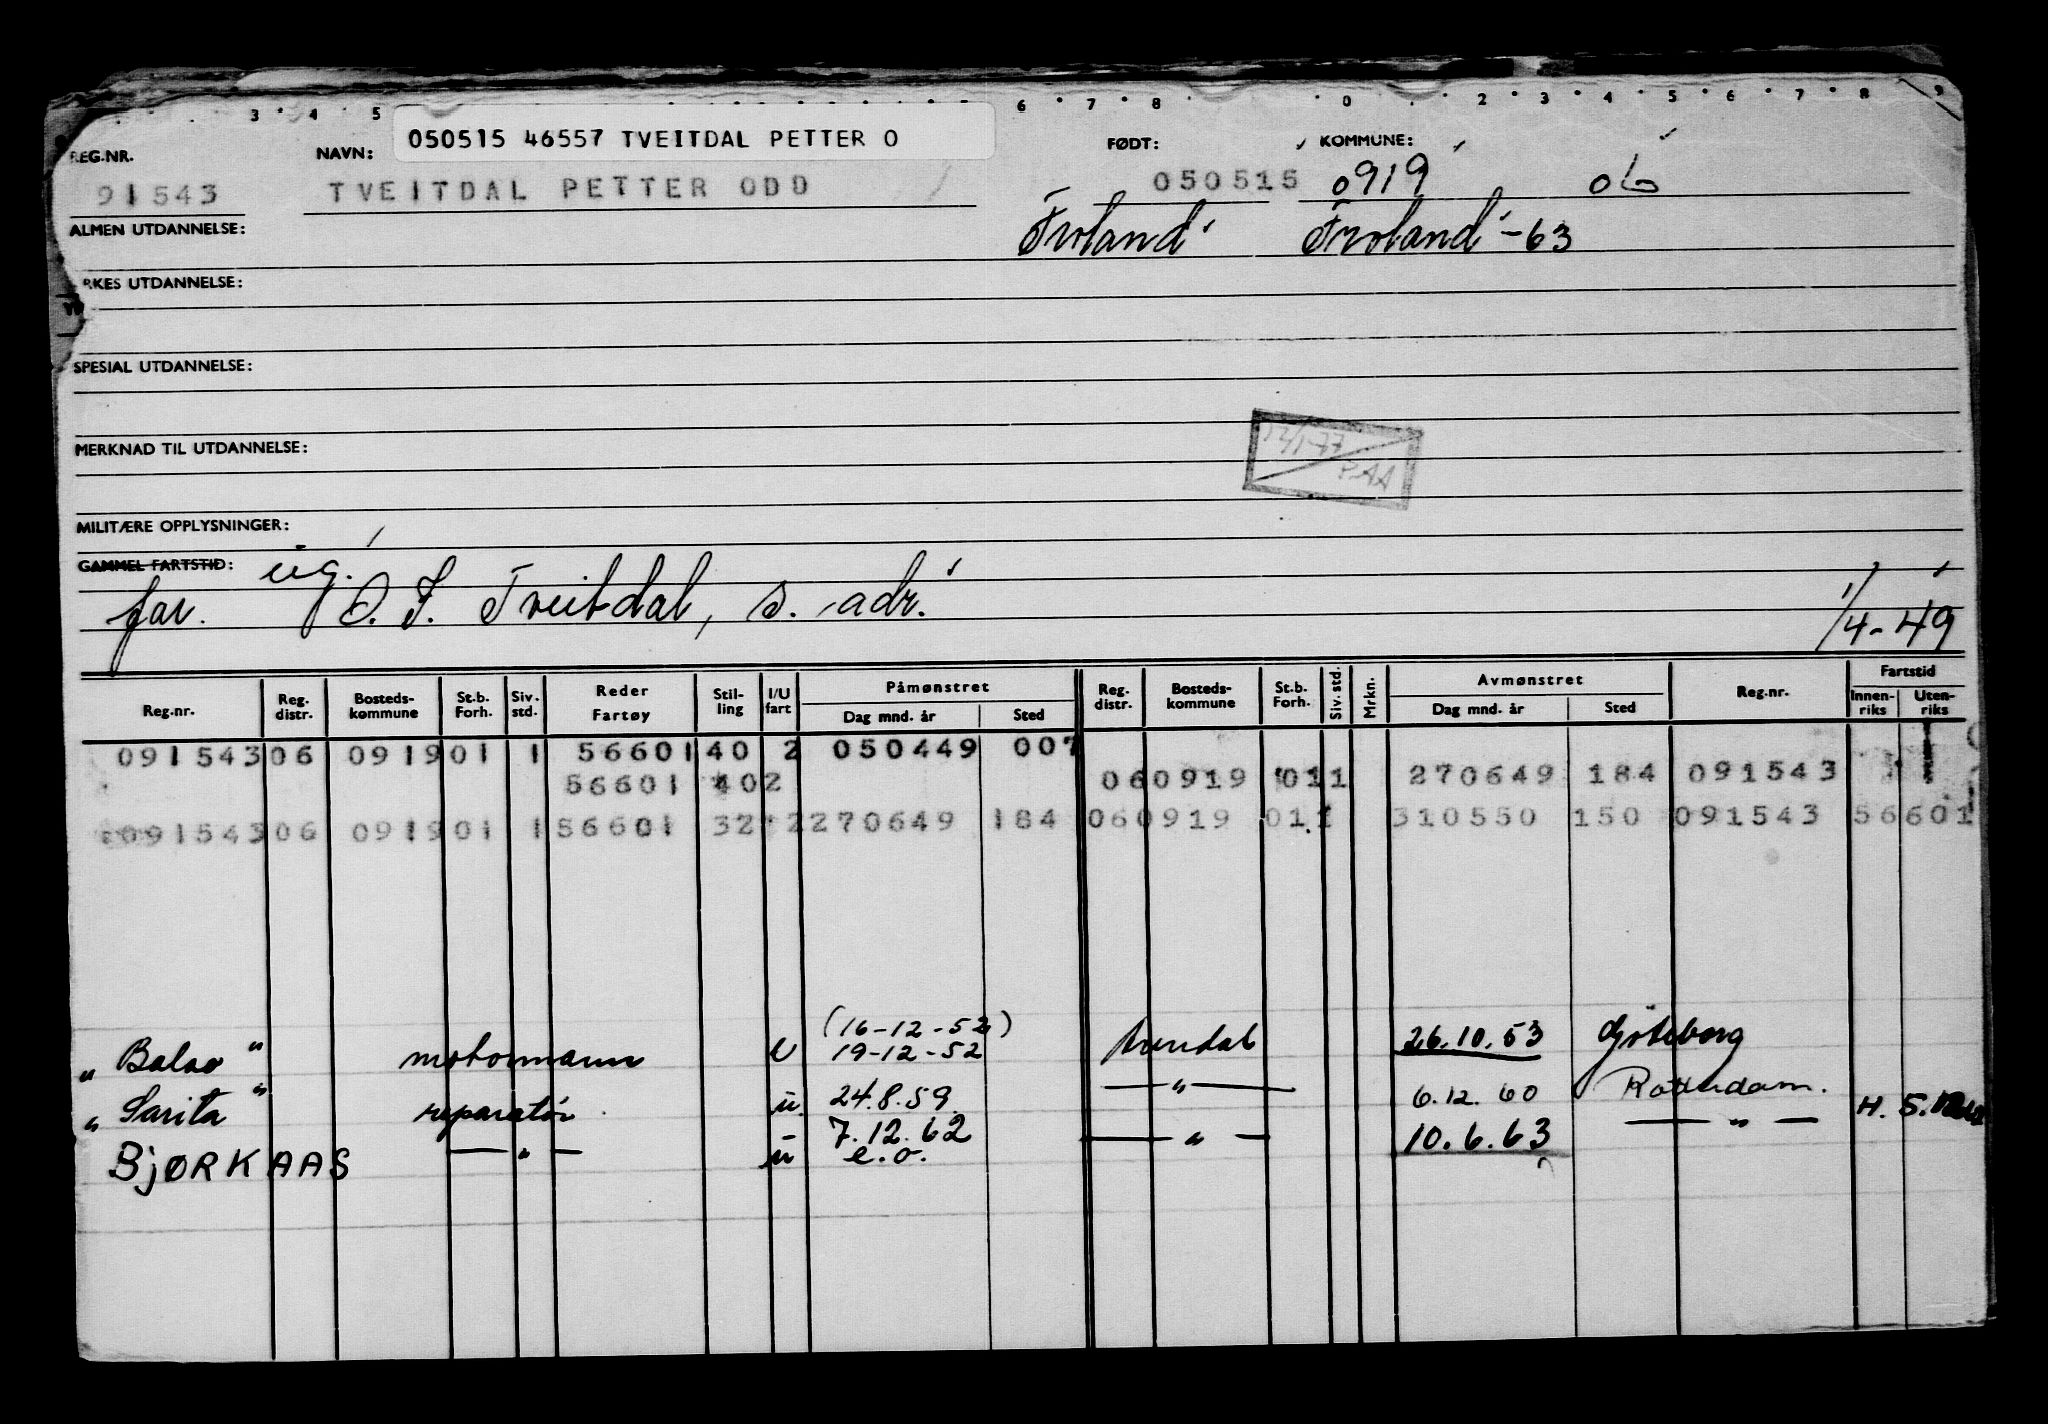 3 4 5 6 7 8 0 2 3 4 5 6 7 8 9
050515 46557 TVEITDAL PETTER O
REG.NR. NAVN: FØDT: KOMMUNE:
91543 TVEITDAL PETTER ODD 050515 0919 06
ALMEN UTDANNELSE: Froland Froland -63
RKES UTDANNELSE:
SPESIAL UTDANNELSE:
MERKNAD TIL UTDANNELSE:
12/1-77
PAA
MILITÆRE OPPLYSNINGER:
GAMMEL FARTSTID: ug.
far. O. F. Tveitdal, s. adr. 1/4-49
Reg.nr. Reg. distr. Bosteds-kommune St.b. Forh. Siv. std. Reder Fartøy Stil-ling I/U fart Påmønstret Dag mnd. år Sted Reg. distr. Bosteds-kommune St.b. Forh. Siv. std. Mrkn. Avmønstret Dag mnd. år Sted Reg.nr. Fartstid Innen-riks Uten-riks
091543 06 0919 01 1 56601 40 2 050449 007
56601 402 060919 011 270649 184 091543
091543 06 0919 01 1 56601 32 2 270649 184 060919 011 310550 150 091543 56601
(16-12-52)
„ Balao " motormann u 19-12-52 Arendal 26.10.53 Göteborg
„ Sarita " reparatör u. 24.8.59 — " — 6.12.60 Rotterdam.
7.12.62 — " — 10.6.63 — " — H. 5.12
BJØRKAAS — " — u e.o.